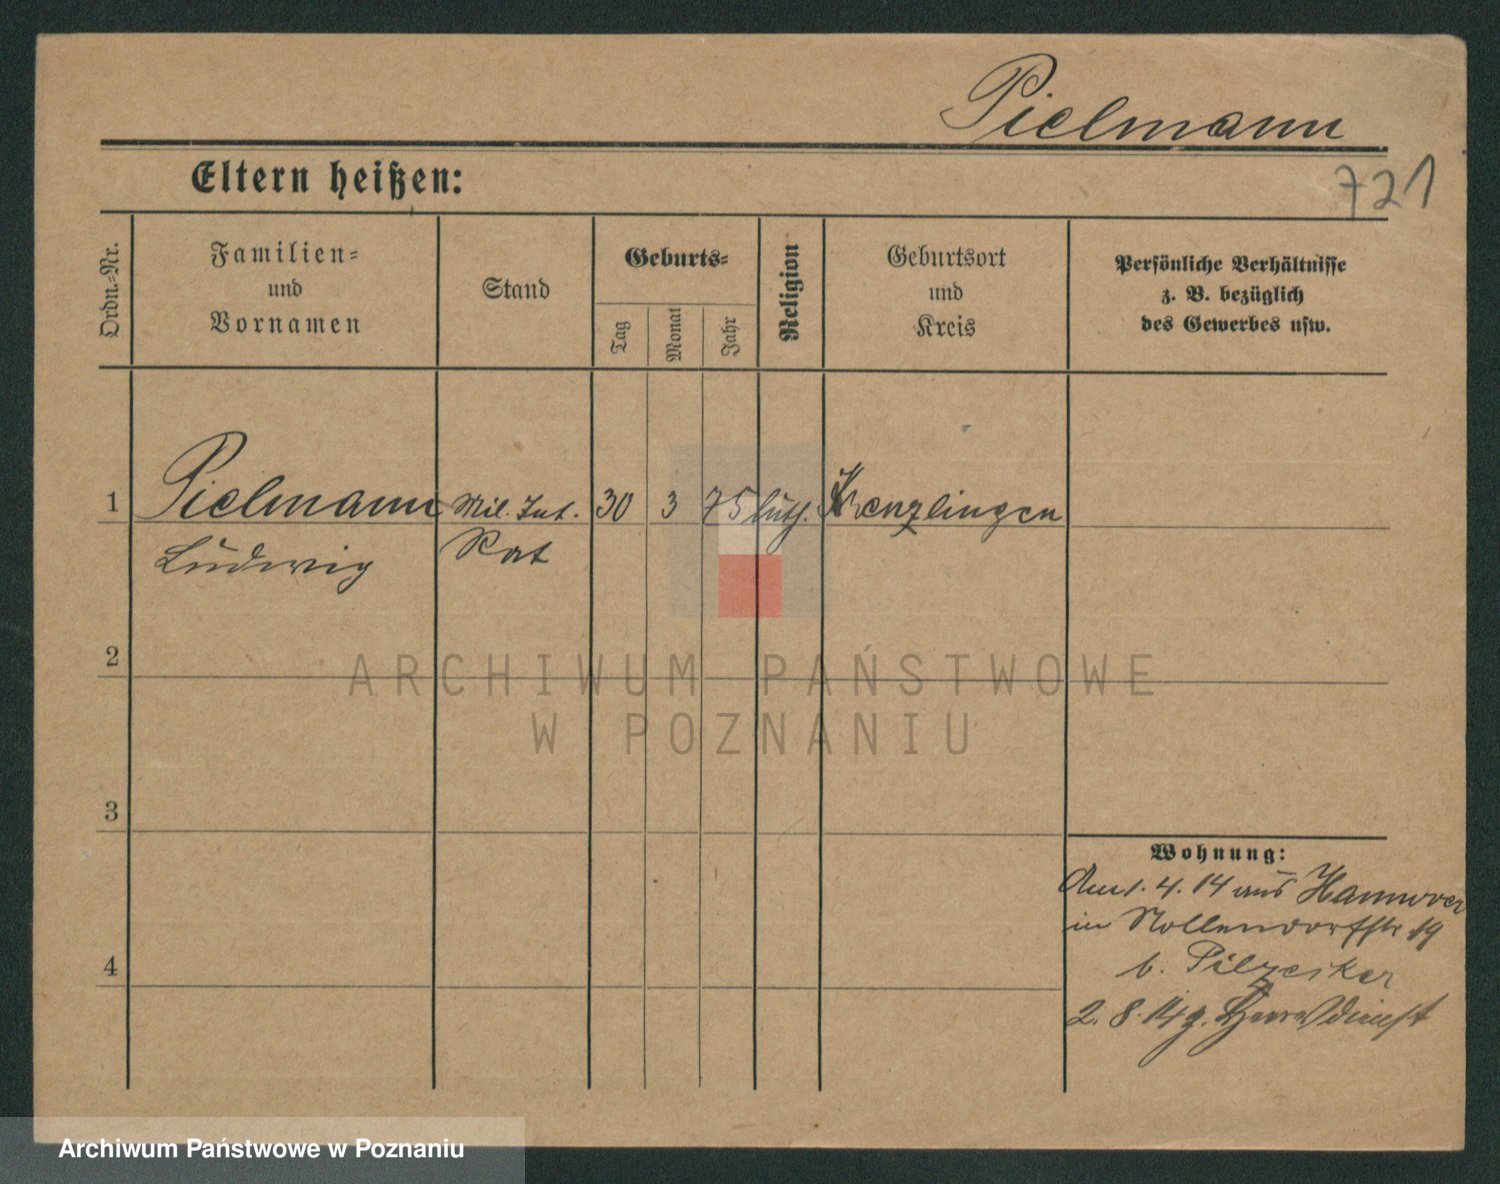 Pielmann
721
Eltern heißen:
Ordn.-Nr.
Familien-
und
Vornamen
Stand
Geburts-
Tag
Monat
Jahr
Religion
Geburtsort
und
Kreis
Persönliche Verhältnisse
z. B. bezüglich
des Gewerbes usw.
1 Pielmann Mil. Int. 30 3 75 luth. Krenzlingen
Ludwig Rat
2
3
4
Wohnung:
Am 1. 4. 14 aus Hannover
in Nollendorfstr 19
b.
2. 8. 14 z. Heeresdienst
ARCHIWUM PAŃSTWOWE
W POZNANIU
Archiwum Państwowe w Poznaniu